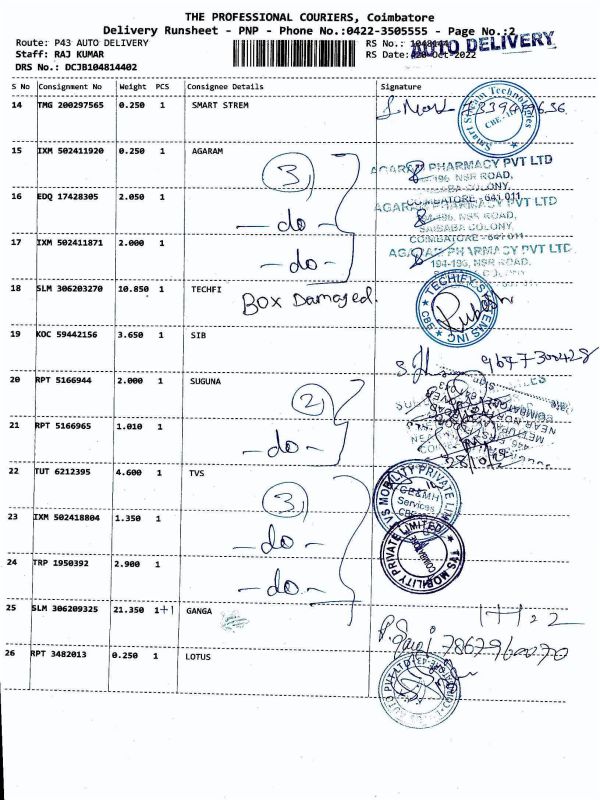 THE PROFESSIONAL COURIERS, Coimbatore
Delivery Runsheet - PNP - Phone No.:0422-3505555 - Page No.:2
Route: P43 AUTO DELIVERY
RS No.: 1048144
AUTO DELIVERY
Staff: RAJ KUMAR
RS Date: 28-Oct-2022
DRS No.: DCJB104814402
S No Consignment No Weight PCS Consignee Details Signature
14 TMG 200297565 0.250 1 SMART STREM
Smart Stream Technologies
CBE
15 IXM 502411920 0.250 1 AGARAM
3
AGARAM PHARMACY PVT LTD
194-196, NSR ROAD,
SAIBABA COLONY,
COIMBATORE - 641 011
16 EDQ 17428305 2.050 1 - do -
AGARAM PHARMACY PVT LTD
194-196, NSR ROAD,
SAIBABA COLONY,
COIMBATORE - 641 011
17 IXM 502411871 2.000 1 - do -
AGARAM PHARMACY PVT LTD
194-196, NSR ROAD,
18 SLM 306203270 10.850 1 TECHFI
Box Damaged.
TECHIEX SYSTEMS INC
CBE
19 KOC 59442156 3.650 1 SIB
9647300428
20 RPT 5166944 2.000 1 SUGUNA
2
21 RPT 5166965 1.010 1 - do -
22 TUT 6212395 4.600 1 TVS
3
TVS MOBILITY PRIVATE LIMITED
GE&MH
Services
23 IXM 502418804 1.350 1 - do -
TVS MOBILITY PRIVATE LIMITED
COIMBATORE
24 TRP 1950392 2.900 1 - do -
25 SLM 306209325 21.350 1+1 GANGA
1+1=2
7867960070
26 RPT 3482013 0.250 1 LOTUS